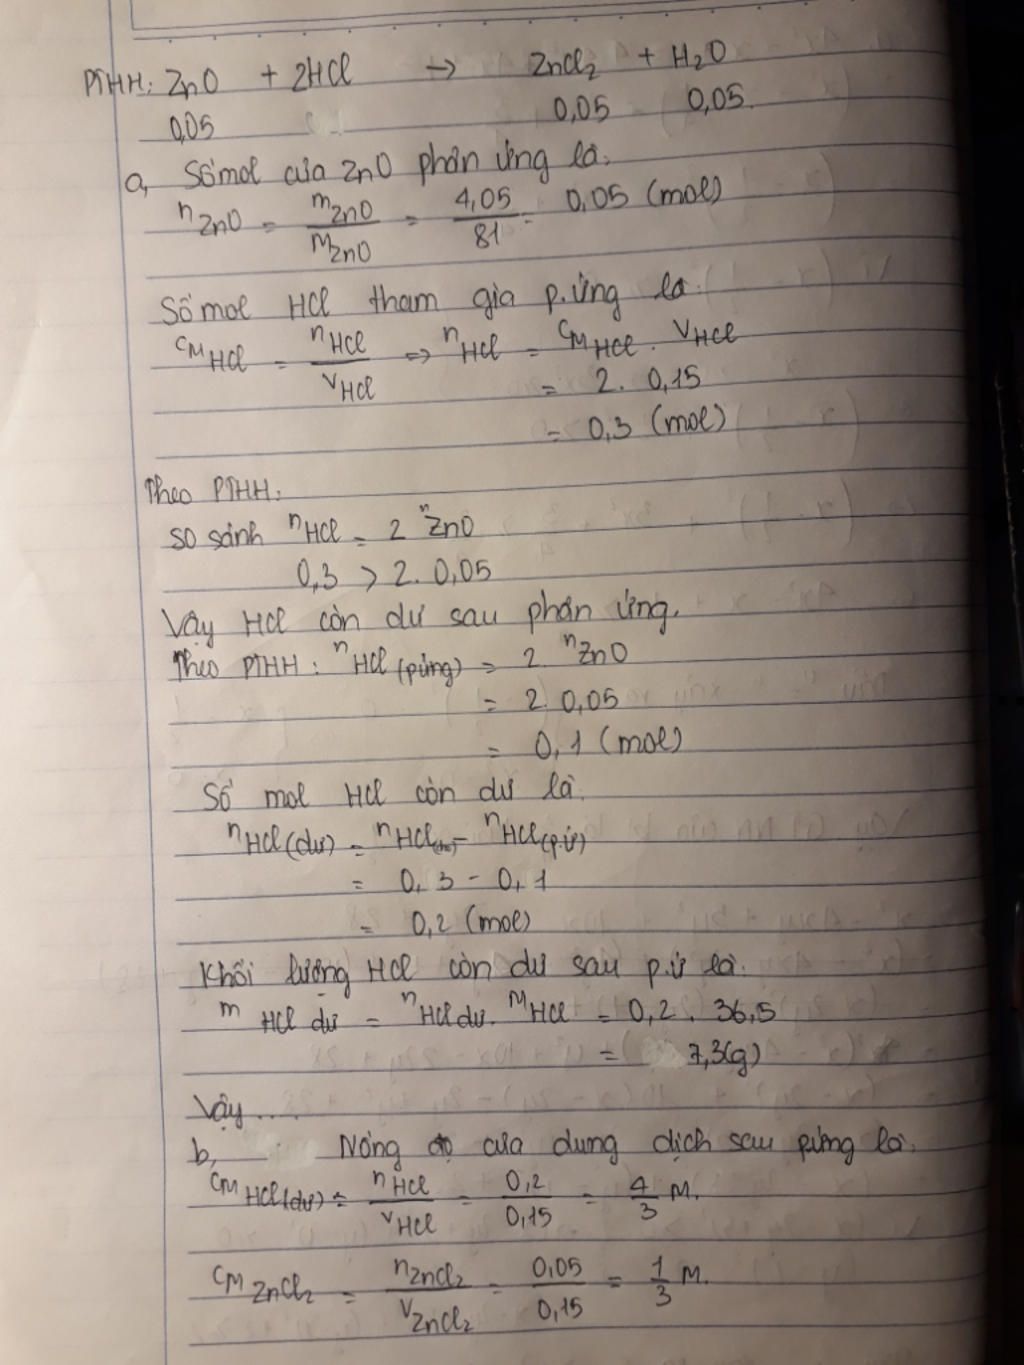 PTHH: ZnO + 2HCl → ZnCl₂ + H₂O
0,05 0,05 0,05
a, Số mol của ZnO phản ứng là:
nZnO = mZnO / MZnO = 4,05 / 81 = 0,05 (mol)
Số mol HCl tham gia p.ứng là:
CM HCl = nHCl / VHCl => nHCl = CM HCl . VHCl
= 2. 0,15
= 0,3 (mol)
Theo PTHH:
So sánh nHCl = 2 nZnO
0,3 > 2. 0,05
Vậy HCl còn dư sau phản ứng.
Theo PTHH: nHCl (pứng) = 2. nZnO
= 2. 0,05
= 0,1 (mol)
Số mol HCl còn dư là:
nHCl (dư) = nHCl - nHCl (p.ứ)
= 0,3 - 0,1
= 0,2 (mol)
Khối lượng HCl còn dư sau p.ứ là:
m HCl dư = nHCl dư. MHCl = 0,2 . 36,5
= 7,3(g)
Vậy....
b, Nồng độ của dung dịch sau pứng là:
CM HCl (dư) = nHCl / VHCl = 0,2 / 0,15 = 4/3 M.
CM ZnCl₂ = nZnCl₂ / VZnCl₂ = 0,05 / 0,15 = 1/3 M.